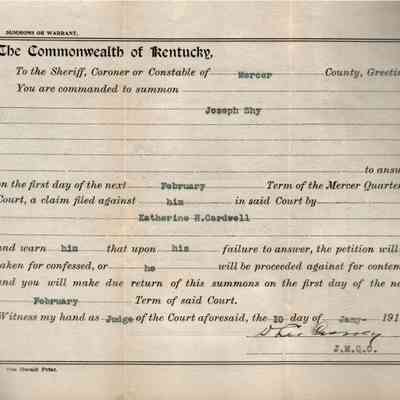 SUMMONS OR WARRANT.
The Commonwealth of Kentucky,
To the Sheriff, Coroner or Constable of Mercer County, Greetin
You are commanded to summon
Joseph Shy
to answ
on the first day of the next February Term of the Mercer Quarter
Court, a claim filed against him in said Court by
Katherine H.Cardwell
and warn him that upon him failure to answer, the petition will
taken for confessed, or he will be proceeded against for contem
and you will make due return of this summons on the first day of the ne
February Term of said Court.
Witness my hand as Judge of the Court aforesaid, the 10 day of Jany- 191
J.M.Q.C.
Herald Print.